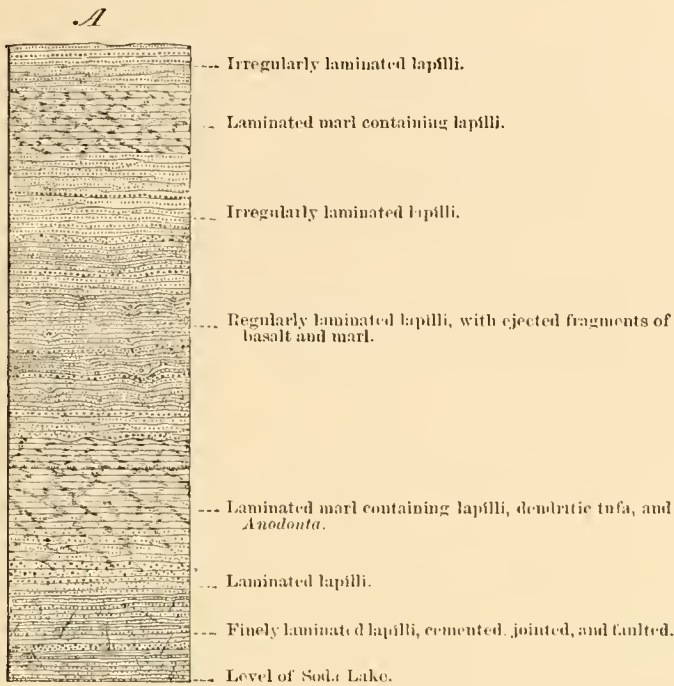 A
Irregularly laminated lapilli.
Laminated marl containing lapilli.
Irregularly laminated lapilli.
Regularly laminated lapilli, with ejected fragments of
basalt and marl.
Laminated marl containing lapilli, dendritic tufa, and
Anodonta.
Laminated lapilli.
Finely laminated lapilli, cemented, jointed, and faulted.
Level of Soda Lake.